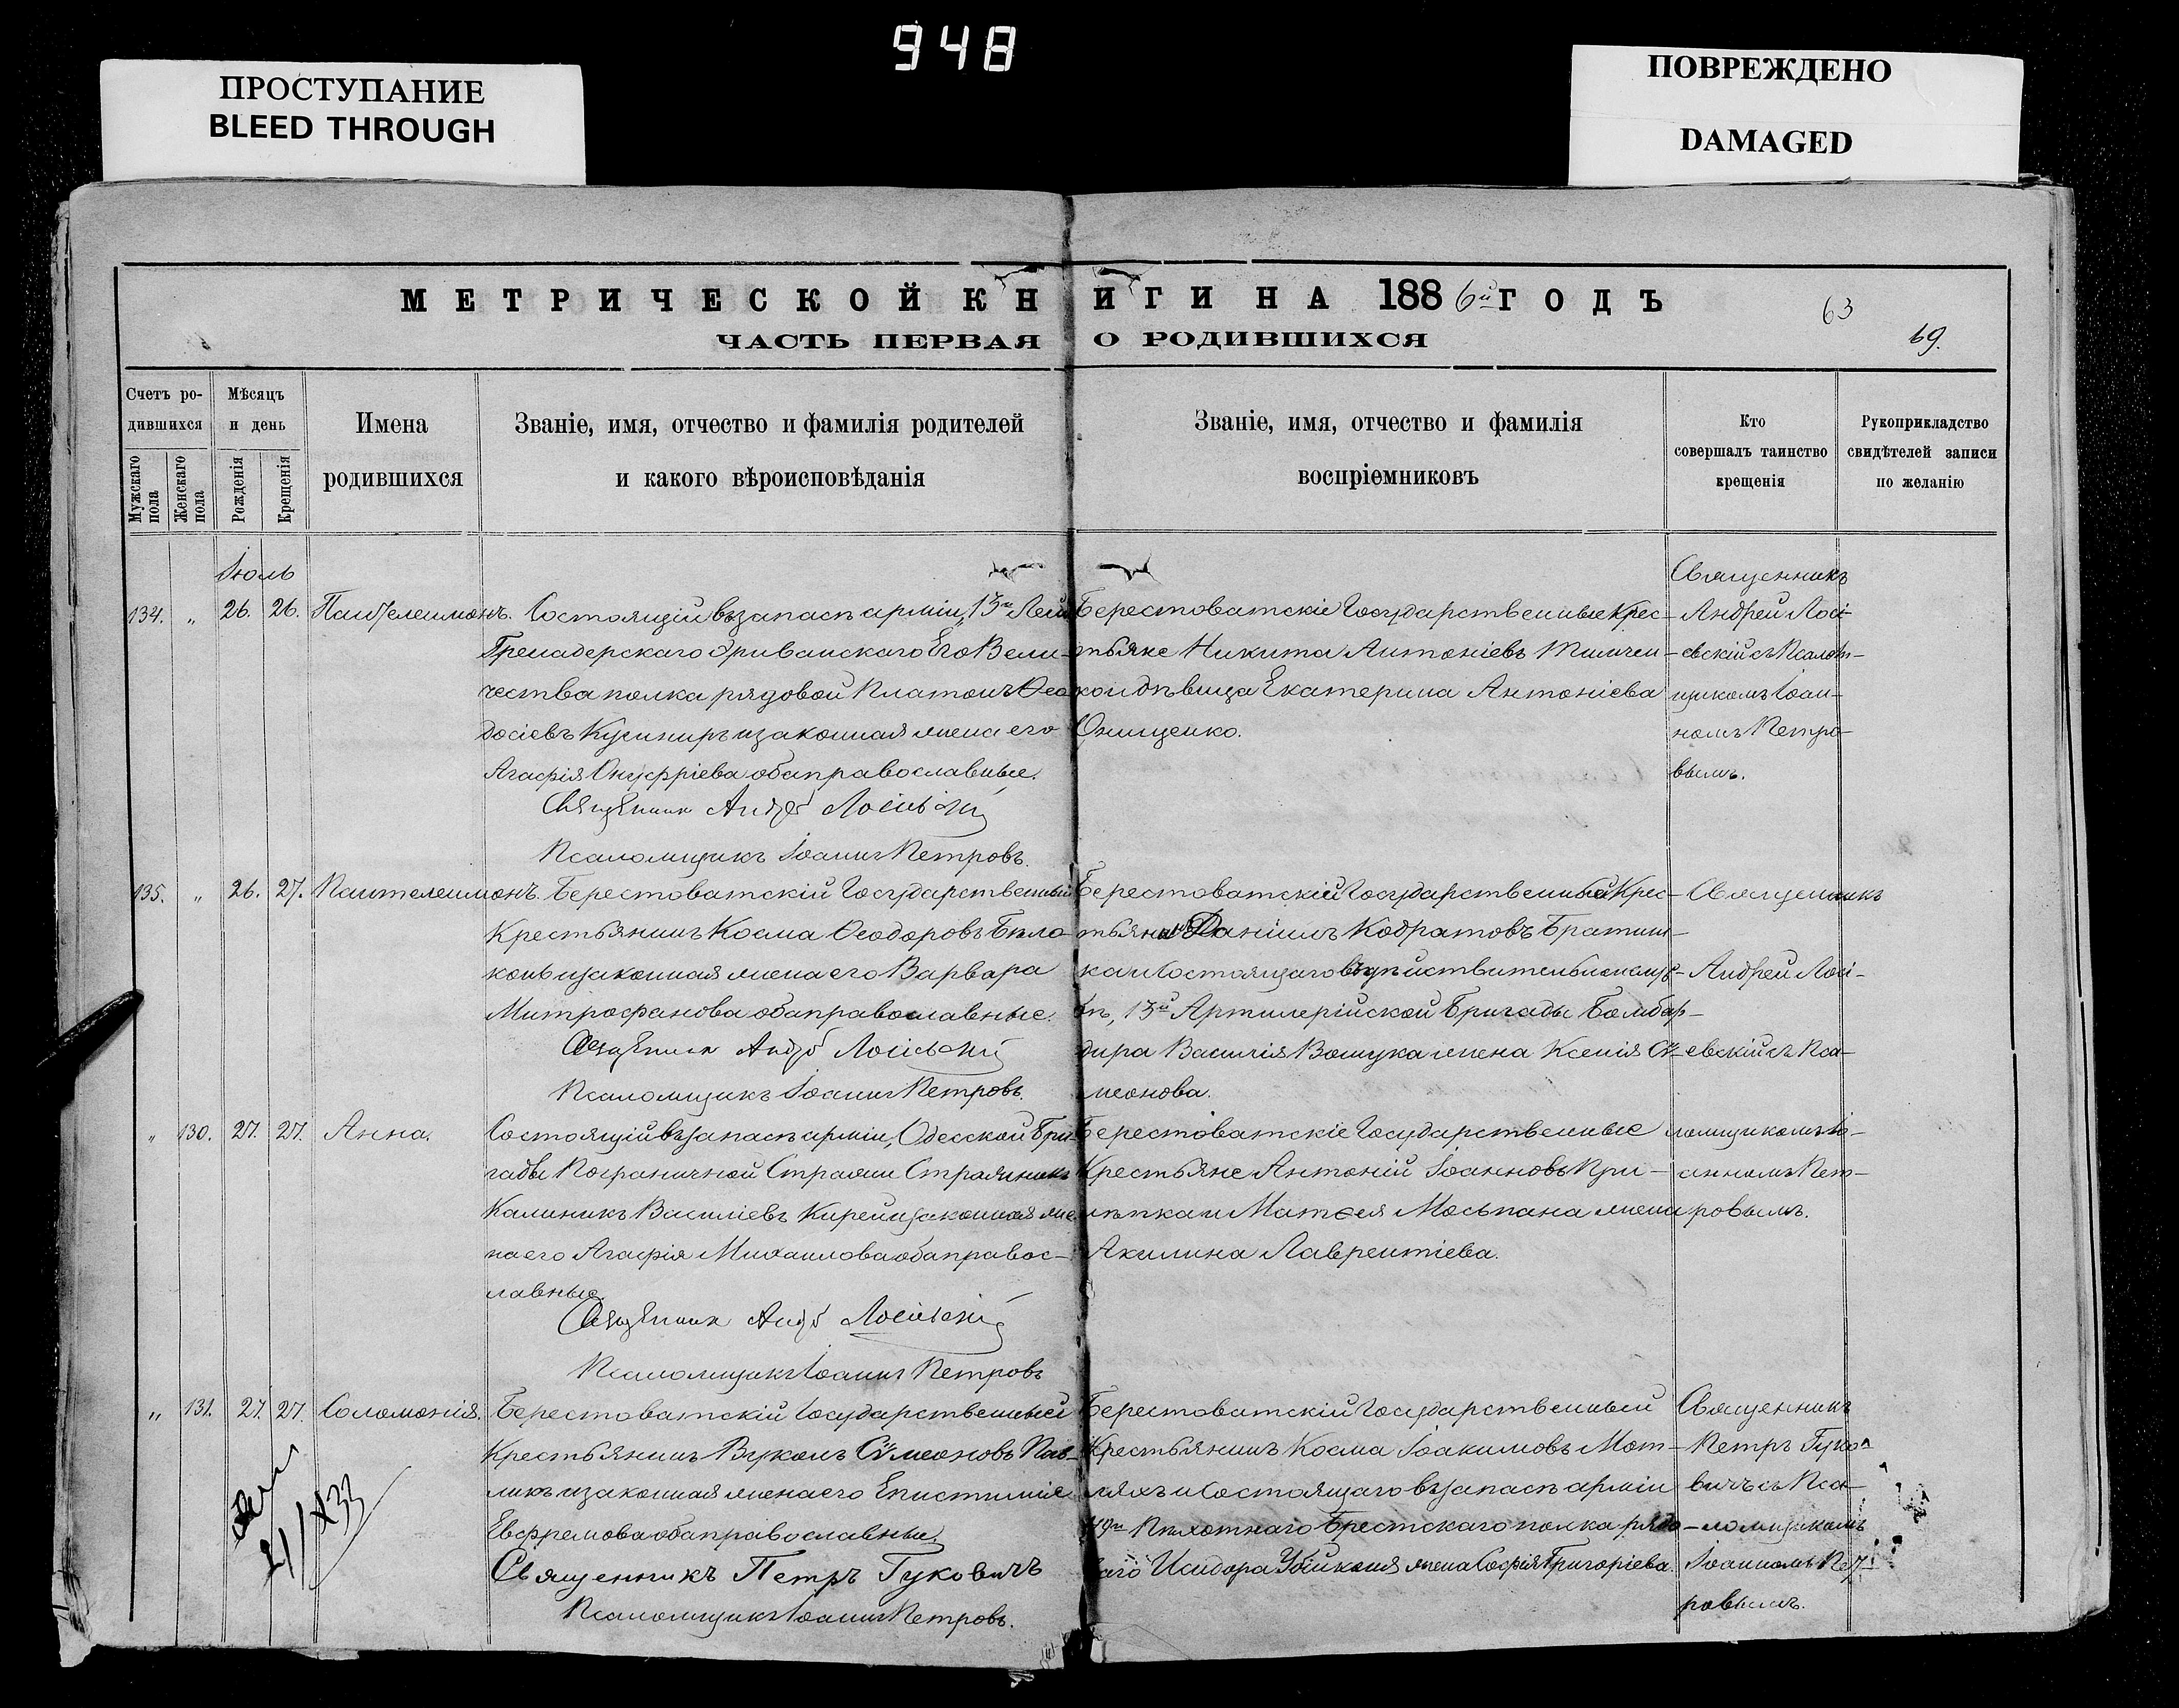 948
ПРОСТУПАНИЕ
BLEED THROUGH
ПОВРЕЖДЕНО
DAMAGED
МЕТРИЧЕСКОЙ КНИГИ НА 1886й ГОДЪ
63
69.
ЧАСТЬ ПЕРВАЯ О РОДИВШИХСЯ
Счетъ ро-
дившихся
Мужскаго пола
Женскаго пола
Мѣсяцъ
и день
Рожденія
Крещенія
Имена
родившихся
Званіе, имя, отчество и фамилія родителей
и какого вѣроисповѣданія
Званіе, имя, отчество и фамилія
воспріемниковъ
Кто
совершалъ таинство
крещенія
Рукоприкладство
свидѣтелей записи
по желанію
Іюль
134. „ 26. 26. Пантелеимонъ.
Состоящій въ запасѣ арміи, 13го Лей
Гренадерскаго Эриванскаго Его Вели-
чества полка рядовой Платонъ Ѳео
досіевъ Кушниръ и законная жена его
Агафія Онуфріева оба православные.
Священникъ Андрей
Псаломщикъ Іоаннъ Петровъ.
Берестоватскіе Государственные Крес-
тьяне Никита Антоніевъ Тимчен-
ко и дѣвица Екатерина Антоніева
Онищенко.
Священникъ
Андрей Лосі-
евскій съ Псалом-
щикомъ Іоан-
номъ Петро-
вымъ.
135. „ 26. 27. Пантелеимонъ.
Берестоватскій Государственный
Крестьянинъ Косма Ѳеодоровъ Бѣло
конь и законная жена его Варвара
Митрофанова оба православные.
Священникъ Андрей
Псаломщикъ Іоаннъ Петровъ.
Берестоватскій Государственный Крес-
тьянинъ Даніилъ Кодратовъ Братиш-
ка и Состоящаго въ дѣйствительной служ-
бѣ, 13й Артилерійской Бригады Бомбар-
дира Василія жена Ксенія Сѵ-
меонова.
Священникъ
Андрей Лосі-
евскій съ Пса-
ломщикомъ Іо-
анномъ Пет-
ровымъ.
„ 130. 27. 27. Анна.
Состоящій въ запасѣ арміи, Одесской Бри
гады Пограничной Стражи Стражникъ
Калиникъ Василіевъ Кирей и законная же
на его Агафія Михаилова оба правос-
лавные.
Священникъ Андрей
Псаломщикъ Іоаннъ Петровъ
Берестоватскіе Государственные
Крестьяне Антоній Іоанновъ При-
лѣпка и Матѳея Мосьпана жена
Акилина Лаврентіева.
„ 131. 27. 27. Соломонія.
Берестоватскій Государственный
Крестьянинъ Вуколъ Сѵмеоновъ Пав-
ликъ и законная жена его Епистимія
Евфремова оба православные.
Священникъ Петръ Гуковичъ
Псаломщикъ Іоаннъ Петровъ.
Берестоватскій Государственный
Крестьянинъ Косма Іоакимовъ Мот-
ляхъ и Состоящаго въ запасѣ арміи
49го Пѣхотнаго Брестскаго полка рядо-
ваго Исидора Убійконя жена Софія Григоріева.
Священникъ
Петръ Гуко-
вичъ съ Пса-
ломщикомъ
Іоанномъ Пет-
ровымъ.
21/X 33